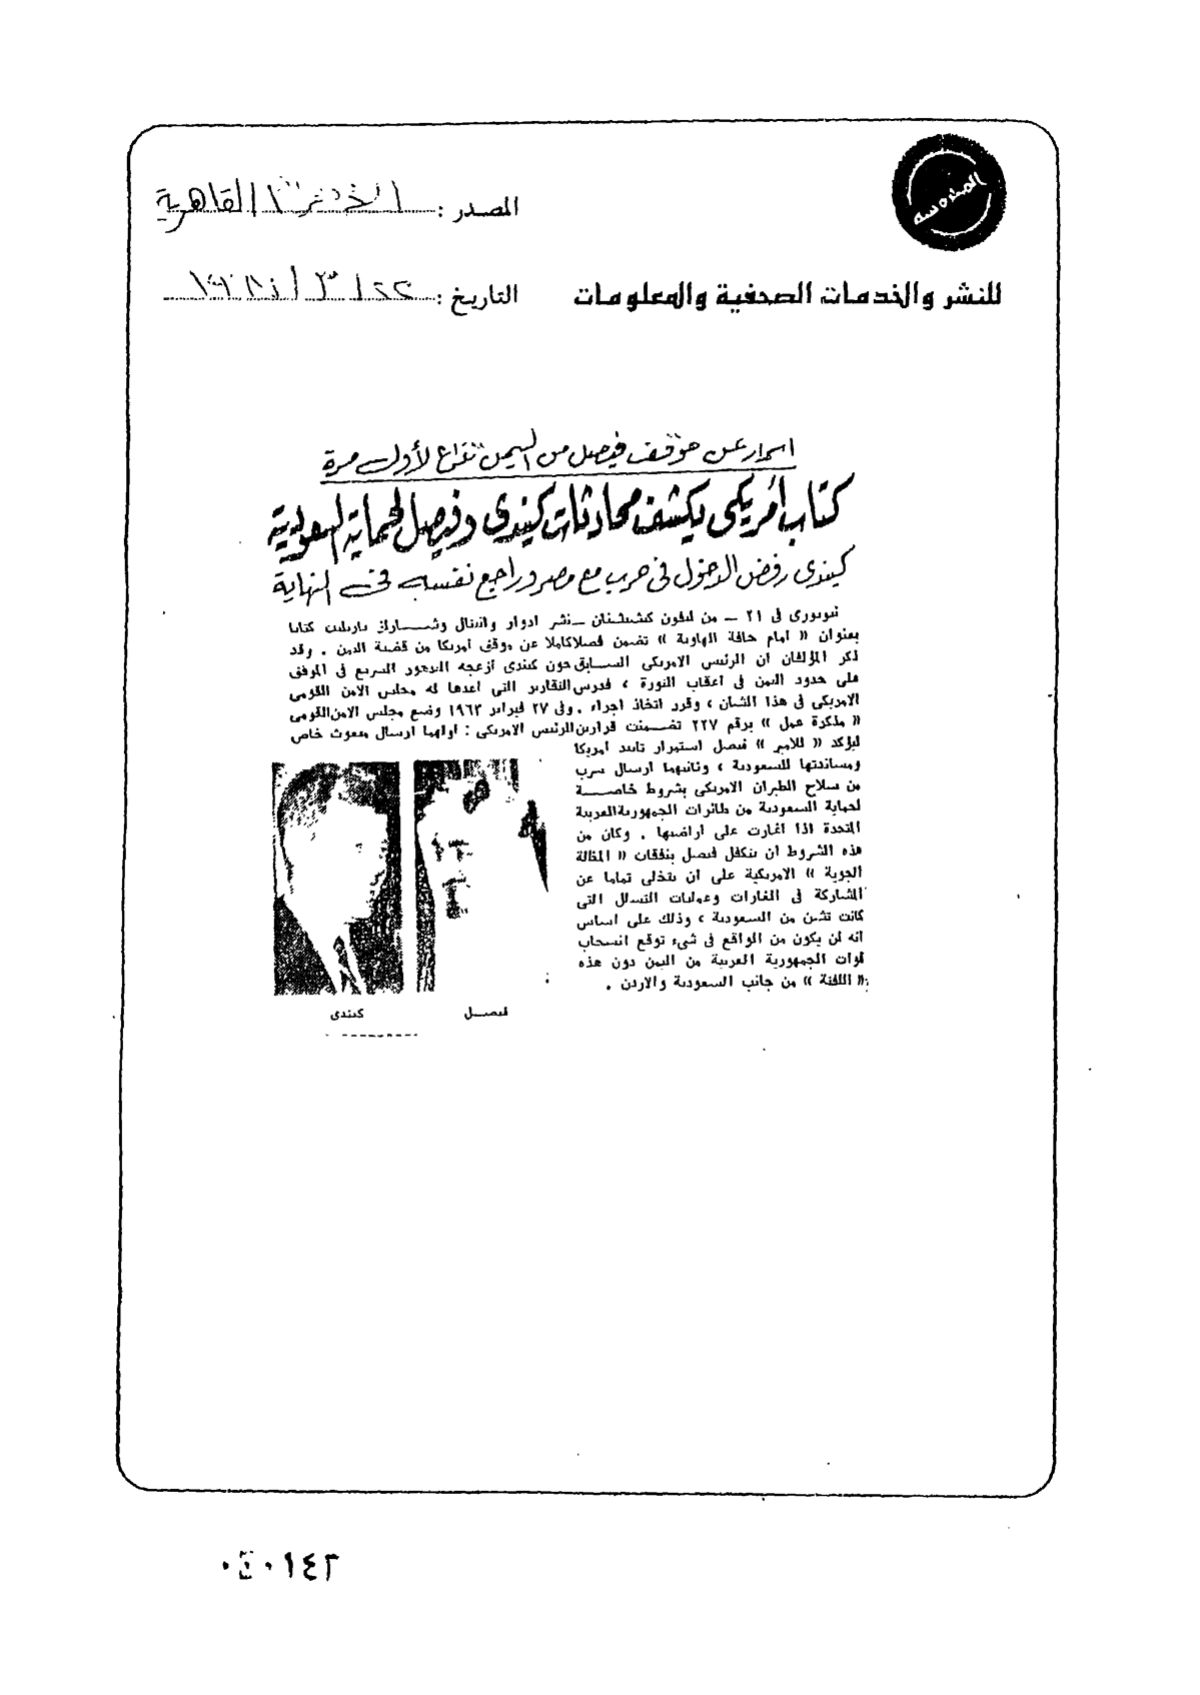 المحروسة
المصدر : القاهرية
للنشر والخدمات الصحفية والمعلومات
التاريخ : ٢٢ / ٣ /
اسرار عن موقف فيصل من اليمن تذاع لأول مرة
كتاب أمريكى يكشف محادثات كيندى وفيصل لحماية السعودية
كيندى رفض الدخول فى حرب مع مصر وراجع نفسه فى النهاية
نيويورك فى ٢١ ــ من ليفون كشيشيان ــ نشر ادوار وانتال وتشـــارلز بارتليت كتابا
بعنوان « امام حافة الهاوية » تضمن فصلا كاملا عن موقف أمريكا من قضية اليمن . وقد
ذكر المؤلفان ان الرئيس الامريكى الســابق جون كيندى أزعجه التدهور السريع فى الموقف
على حدود اليمن فى أعقاب الثورة ، فدرس التقارير التى أعدها له مجلس الامن القومى
الامريكى فى هذا الشأن ، وقرر اتخاذ اجراء . وفى ٢٧ فبراير ١٩٦٣ وضع مجلس الامن القومى
« مذكرة عمل » برقم ٢٢٧ تضــمنت قرارين للرئيس الامريكى : أولهما ارسال مبعوث خاص
ليؤكد « للامير » فيصل استمرار تأييد امريكا
ومساندتها للسعودية ، وثانيهما ارسال سرب
من سلاح الطيران الامريكى بشروط خاصـــة
لحماية السعودية من طائرات الجمهورية العربية
المتحدة اذا أغارت على أراضيها . وكان من
هذه الشروط ان يتكفل فيصل بنفقات « المظلة
الجوية » الامريكية على ان يتخلى تماما عن
المشاركة فى الغارات وعمليات التسلل التى
كانت تشن من السعودية ، وذلك على اساس
أنه لن يكون من الواقع فى شىء توقع انسحاب
قوات الجمهورية العربية من اليمن دون هذه
« اللفتة » من جانب السعودية والاردن .
فيصــل
كيندى